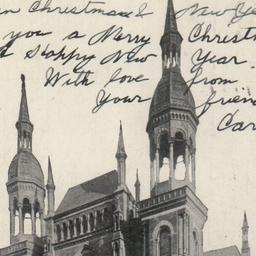 Christmas & New Ye
you a Merry Christ
Happy New Year.
With love from
Your friend
Car